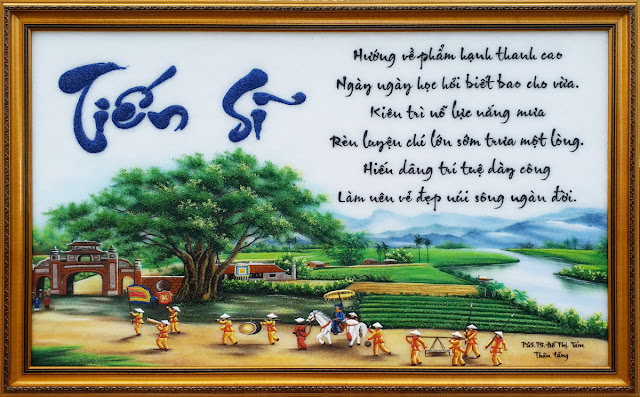 Tiến Sĩ
Hướng về phẩm hạnh thanh cao
Ngày ngày học hỏi biết bao cho vừa.
Kiên trì nỗ lực nắng mưa
Rèn luyện chí lớn sớm trưa một lòng.
Hiến dâng trí tuệ dày công
Làm nên vẻ đẹp núi sông ngàn đời.
PGS.TS. Đỗ Thị Tám
Thân tặng